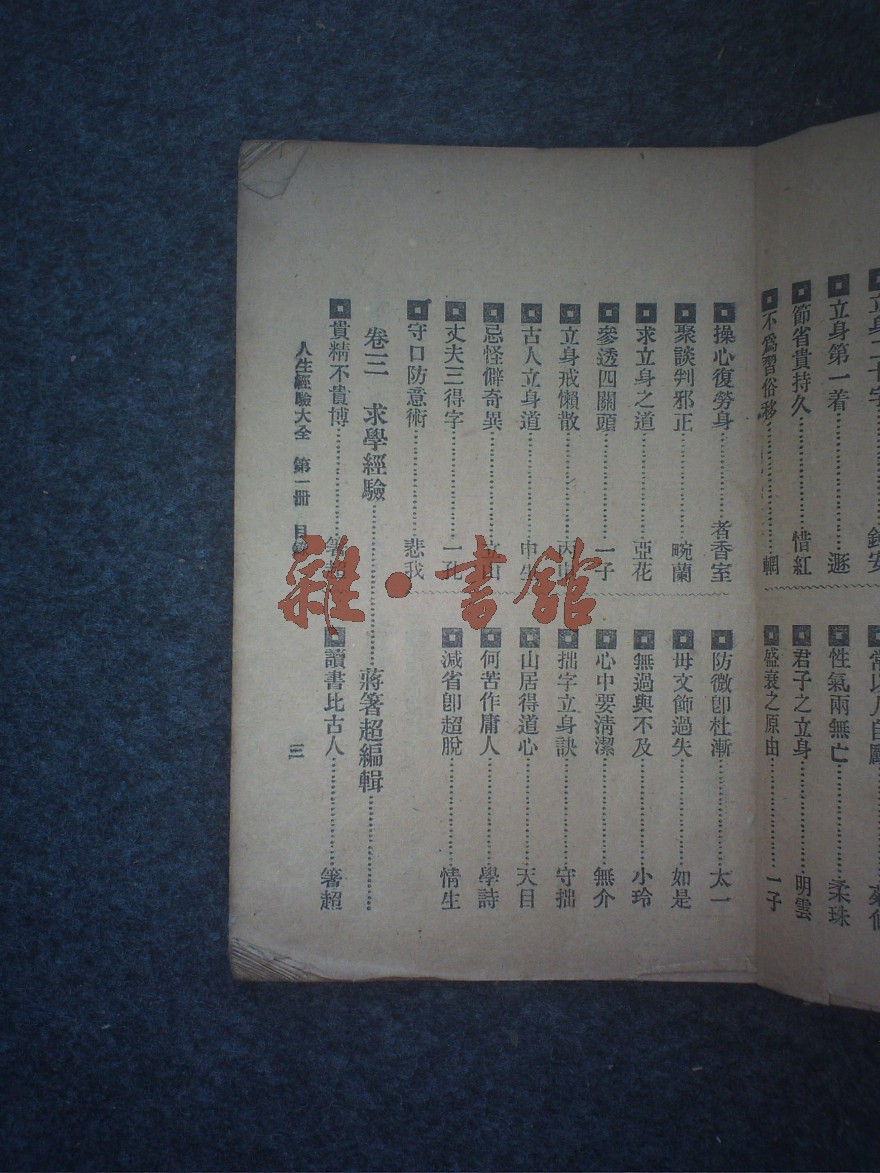 立身二十字
立身第一着
節省貴持久……惜紅
不爲習俗移
性氣兩無亡……柔珠
君子之立身……明雲
盛衰之原由……一子
操心復勞身……者香室
聚談判邪正……畹蘭
求立身之道……亞花
參透四關頭……一子
立身戒懶散
古人立身道
忌怪僻奇異……立山
丈夫三得字……一孔
守口防意術……悲我
防微卽杜漸……太一
毋文飾過失……如是
無過與不及……小玲
心中要淸潔……無介
拙字立身訣……守拙
山居得道心……天目
何苦作庸人……學詩
減省卽超脫……情生
卷三 求學經驗……蔣箸超編輯……
貴精不貴博……箸超
讀書比古人……箸超
人生經驗大全 第一冊 目錄
三
雜·書館